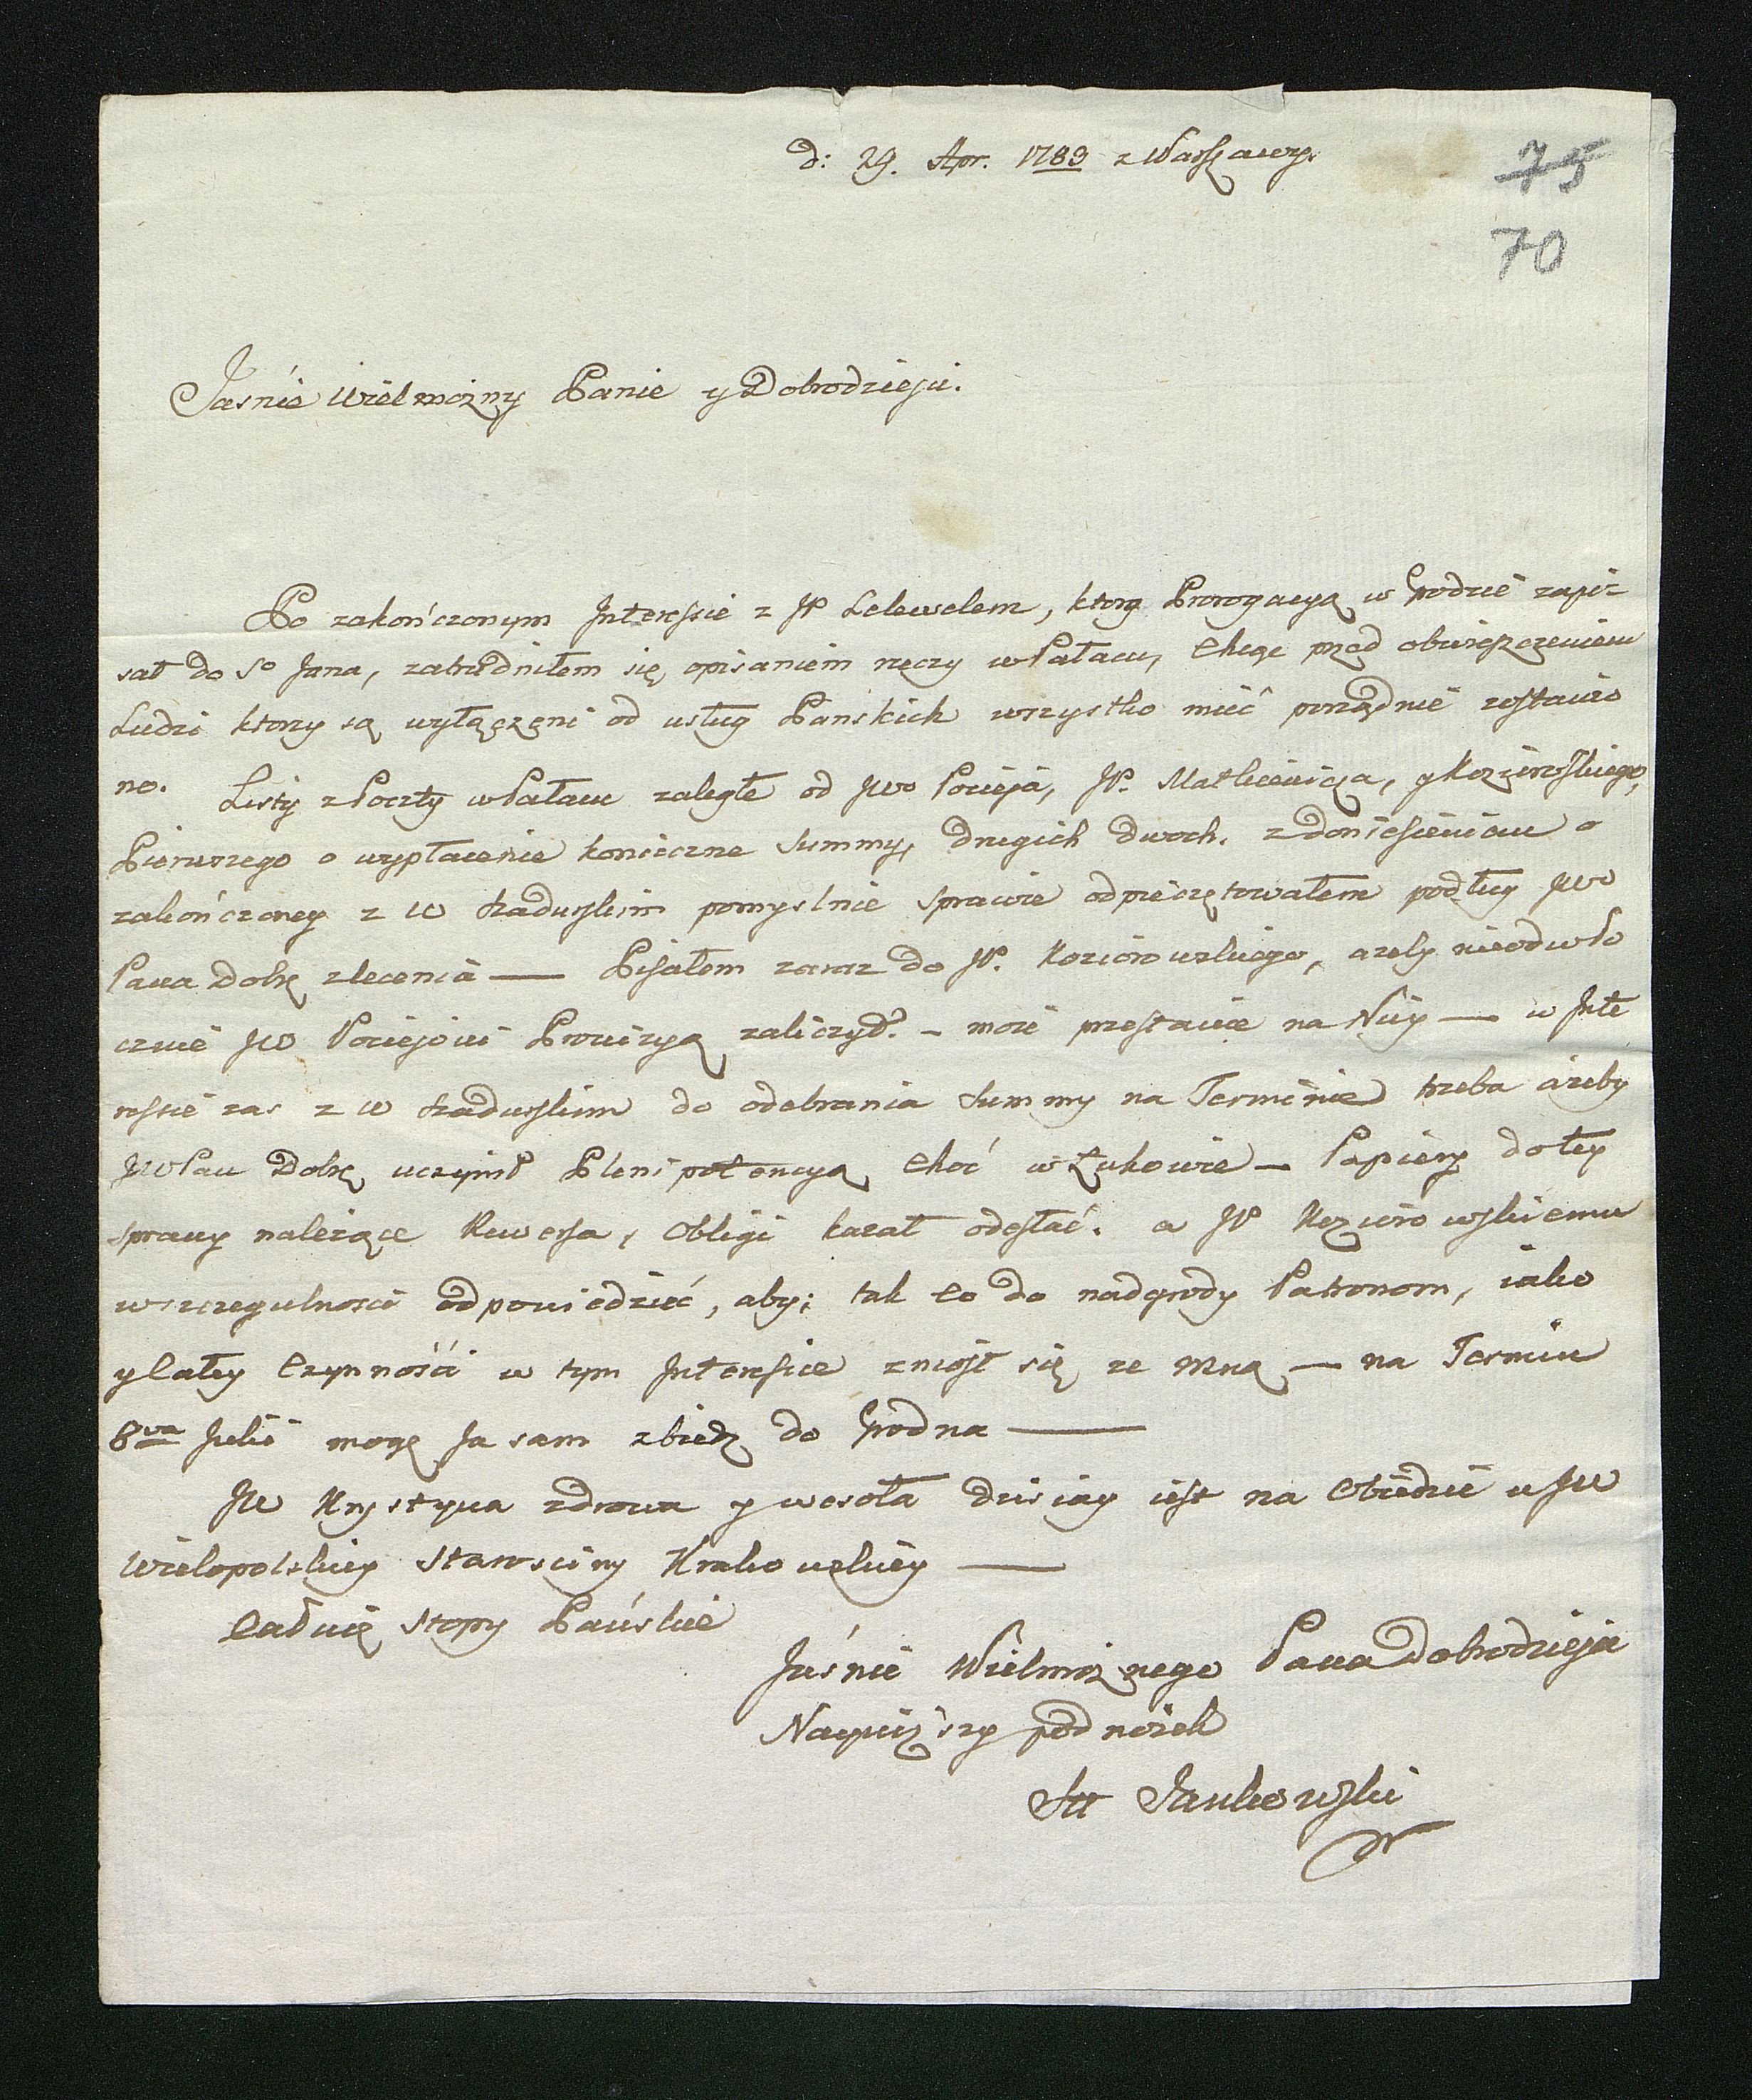 d: 29. Apr. 1783 z Warszawy.
75
70
Jaśnie Wielmożny Panie y Dobrodzieju.
Po zakończonym Interessie z JP Lelewelem, ktory Prorogacyą w Grodzie zapi-
sał do So Jana, zatrudniłem się opisaniem rzeczy w Pałacu, Chcąc przed obwieszczeniem
Ludzi ktorzy są wyłączeni od usług Panskich wszystko mieć porządnie zostawio
no. Listy z Poczty w Pałacu zaległe od JWo Pocieja, JP. Matkiewicza, y Koziorowskiego,
Pierwszego o wypłacenie konieczne Summy, drugich dwoch. z doniesieniem o
zakończoney z W pomyslnie sprawie odpieczętowałem podług JWo
Pana Dobr zlecenia — Pisałem zaraz do JP. Koziorowskiego, azeby nieodwło
cznie JW Pociejowi Prowizyą zaliczył. – może przestanie na Niey — w Inte
ressie zas z W do odebrania Summy na Terminie trzeba ażeby
JWPan Dobr uczynił Plenipotencyą Choć w Łukowie — Papiery do tey
sprawy należące Rewersa, Obligi kazał odesłać. a JP Koziorowskiemu
w szczegulnosci odpowiedzieć, aby; tak Co do nadgrody Patronom, iako
y Całey Czynności w tym Interessie zniosł się ze Mną — na Termin
8va Julii mogę Ja sam zbiedz do Grodna —
JW Krystyna zdrowa y wesoła dzisiay iest na Obiedzie u JW
Wielopolskiey Starosciny Krakowskiey —
Całuię Stopy Pańskie
Jaśnie Wielmożnego Pana Dobrodzieja
Nayniższy podnożek
Jankowski